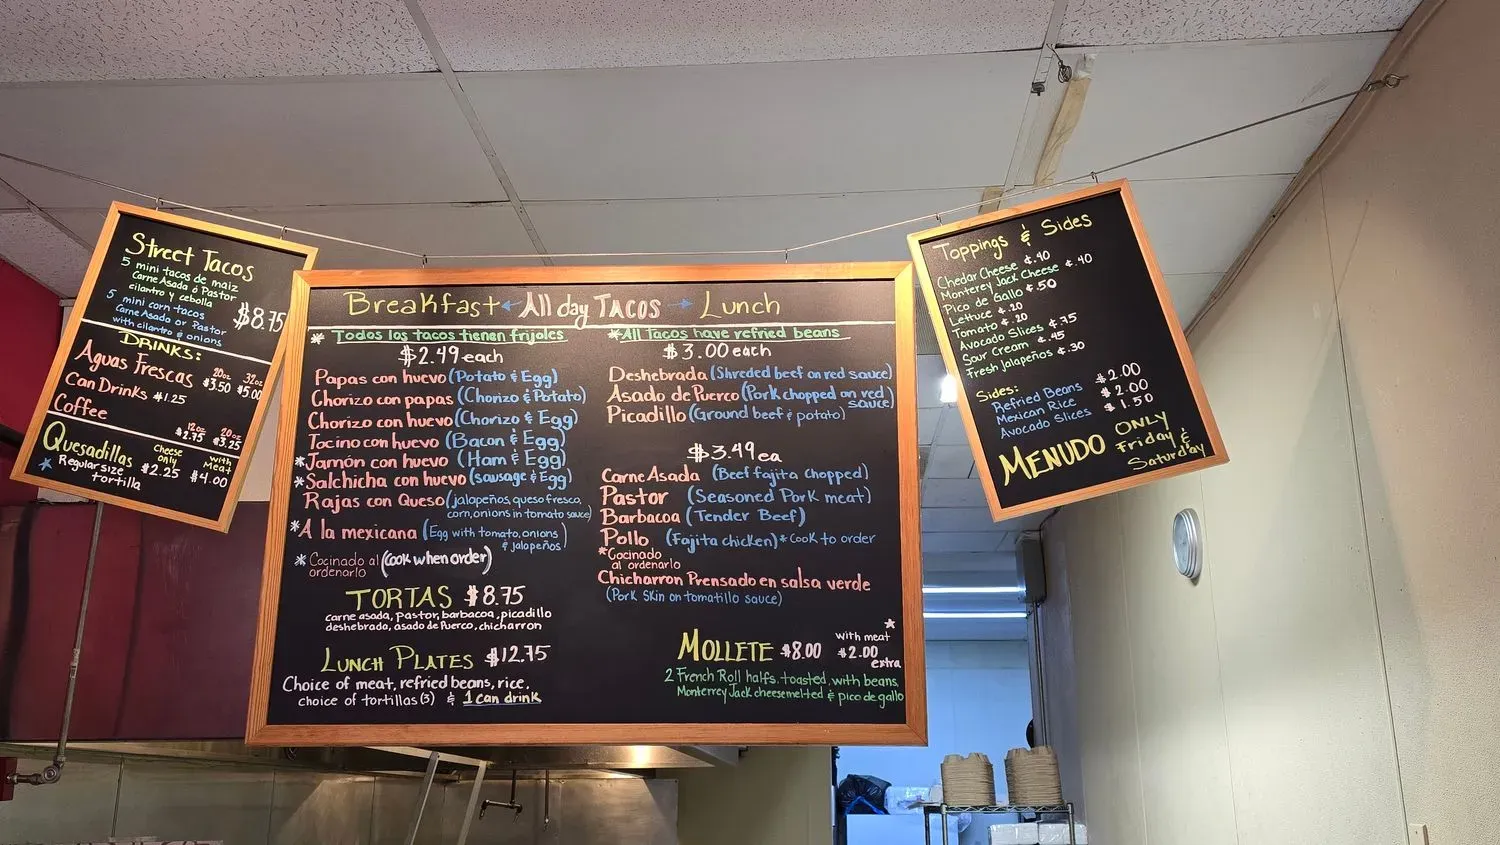 Street Tacos
5 mini tacos de maiz
Carne Asada ó Pastor
cilantro y cebolla
5 mini corn tacos
Carne Asada or Pastor
with cilantro & onions
$8.75
DRINKS:
20oz 32oz
Aguas Frescas $3.50 $5.00
Can Drinks $1.25
Coffee
12oz 20oz
$2.75 $3.25
Quesadillas
Cheese only with Meat
Regular size
tortilla
$2.25 $4.00
Breakfast All day TACOS Lunch
* Todos los tacos tienen frijoles
$2.49 each
Papas con huevo (Potato & Egg)
Chorizo con papas (Chorizo & Potato)
Chorizo con huevo (Chorizo & Egg)
Tocino con huevo (Bacon & Egg)
*Jamón con huevo (Ham & Egg)
*Salchicha con huevo (sausage & Egg)
Rajas con Queso (jalapeños, queso fresco,
corn, onions in tomato sauce)
*A la mexicana (Egg with tomato, onions
& jalapeños)
* Cocinado al (Cook when order)
ordenarlo
TORTAS $8.75
carne asada, pastor, barbacoa, picadillo
deshebrada, asado de Puerco, chicharron
LUNCH PLATES $12.75
Choice of meat, refried beans, rice,
choice of tortillas (3) & 1 can drink
*All Tacos have refried beans
$3.00 each
Deshebrada (Shreded beef on red sauce)
Asado de Puerco (Pork chopped on red
sauce)
Picadillo (Ground beef & potato)
$3.49 ea
Carne Asada (Beef fajita chopped)
Pastor (Seasoned Pork meat)
Barbacoa (Tender Beef)
Pollo (Fajita chicken) * Cook to order
*Cocinado
al ordenarlo
Chicharron Prensado en salsa verde
(Pork Skin on tomatillo sauce)
MOLLETE $8.00 with meat $2.00 extra
2 French Roll halfs. toasted, with beans,
Monterrey Jack cheese melted & pico de gallo
Toppings & Sides
Chedar Cheese ¢.40
Monterey Jack Cheese ¢.40
Pico de Gallo ¢.50
Lettuce ¢.20
Tomato ¢.20
Avocado Slices ¢.75
Sour Cream ¢.45
Fresh Jalapeños ¢.30
Sides:
Refried Beans $2.00
Mexican Rice $2.00
Avocado Slices $1.50
MENUDO ONLY
Friday &
Saturday